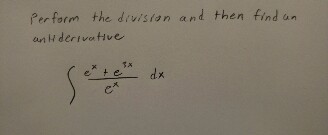 Perform the division and then find an
antiderivative
∫ (e^x + e^3x) / e^x dx